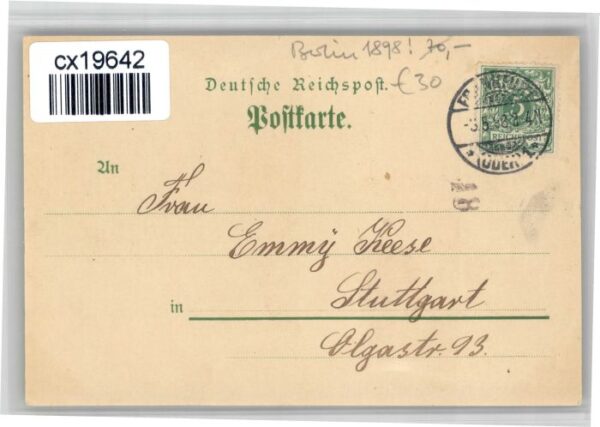 cx19642
Berlin 1898! 70,-
Deutsche Reichspost.
€30
Postkarte.
An
Frau
Emmy Keese
in Stuttgart
Olgastr. 93.
(ODER) 1
REICHSPOST
5